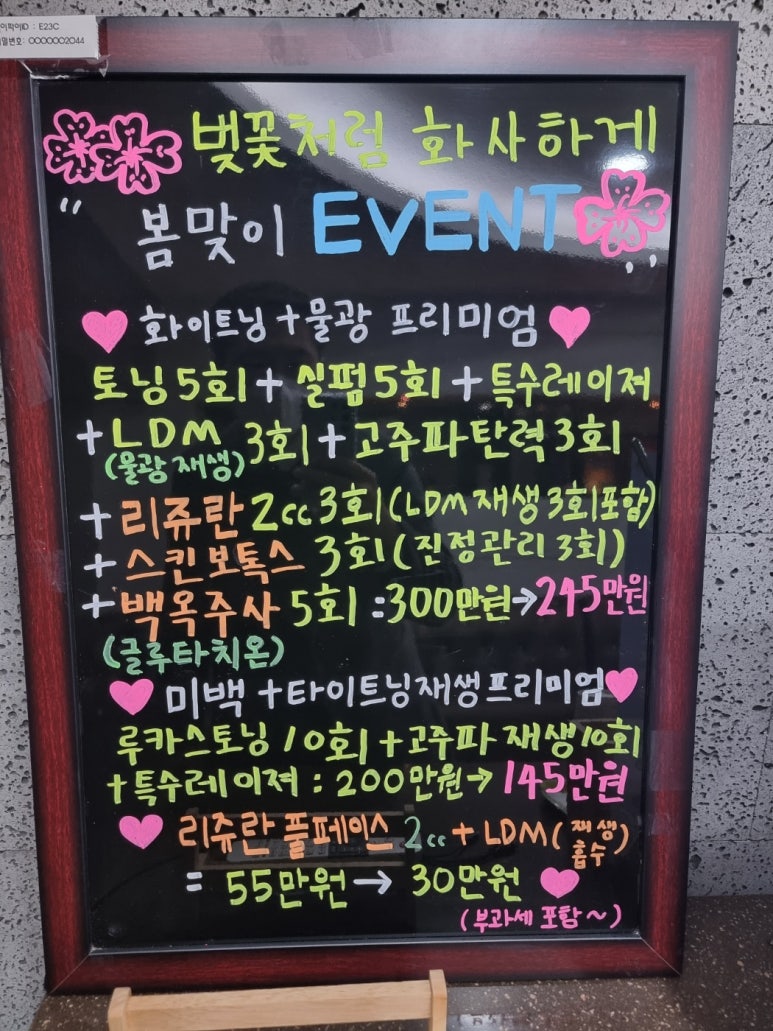 E23C
0000002044
벚꽃처럼 화사하게
" 봄맞이 EVENT "
화이트닝+물광 프리미엄
토닝5회+실펌5회+특수레이져
+LDM 3회+고주파탄력3회
(물광재생)
+리쥬란 2cc 3회(LDM재생3회포함)
+스킨보톡스 3회(진정관리3회)
+백옥주사 5회 :300만원→245만원
(글루타치온)
미백+타이트닝재생프리미엄
루카스토닝10회+고주파재생10회
+특수레이져:200만원→145만원
리쥬란풀페이스 2cc+LDM(재생흡수)
=55만원→30만원
(부과세 포함~)